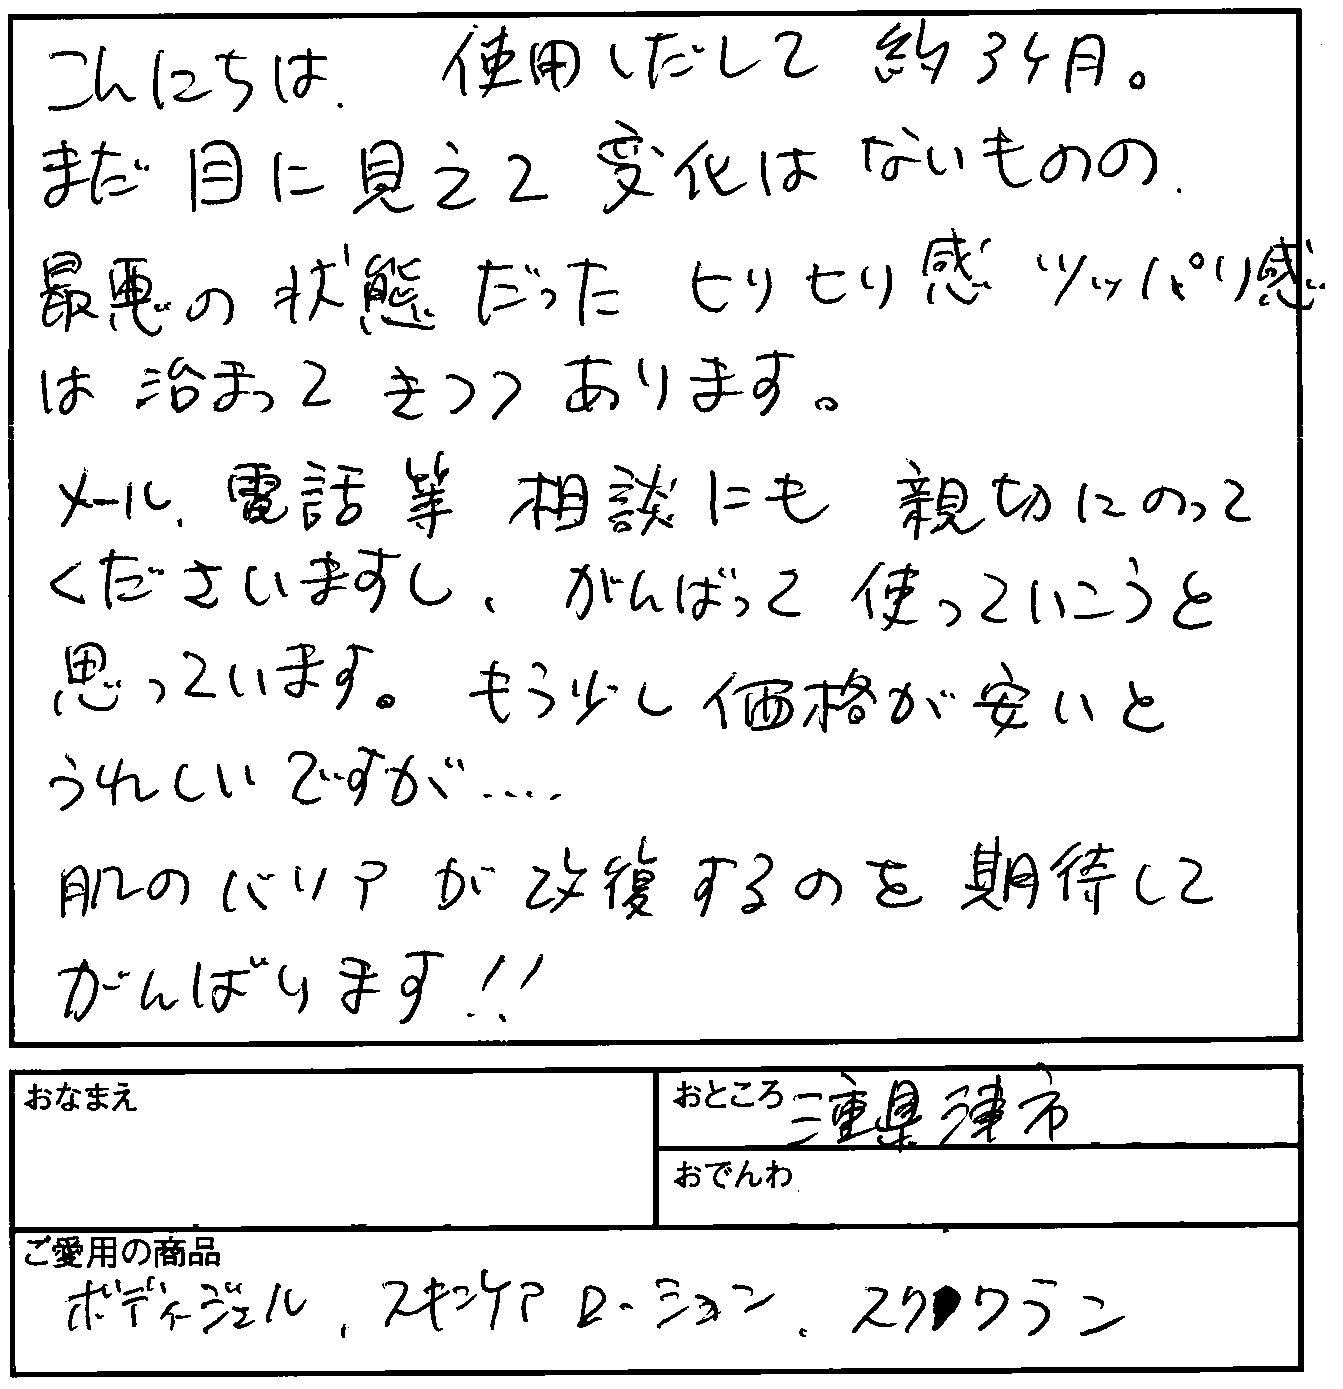 こんにちは. 使用しだして 約3ヶ月。
まだ 目に見えて 変化は ないものの.
最悪の 状態 だった ヒリヒリ感 ツッパリ感
は 治まって きつつ あります。
メール. 電話 等 相談にも 親切にのって
くださいますし、がんばって 使っていこうと
思っています。もう少し 価格が安いと
うれしいですが....
肌のバリアが改復するのを期待して
がんばります!!
おなまえ
おところ 三重県津市
おでんわ
ご愛用の商品
ボディージェル、スキンケアローション、スクワラン